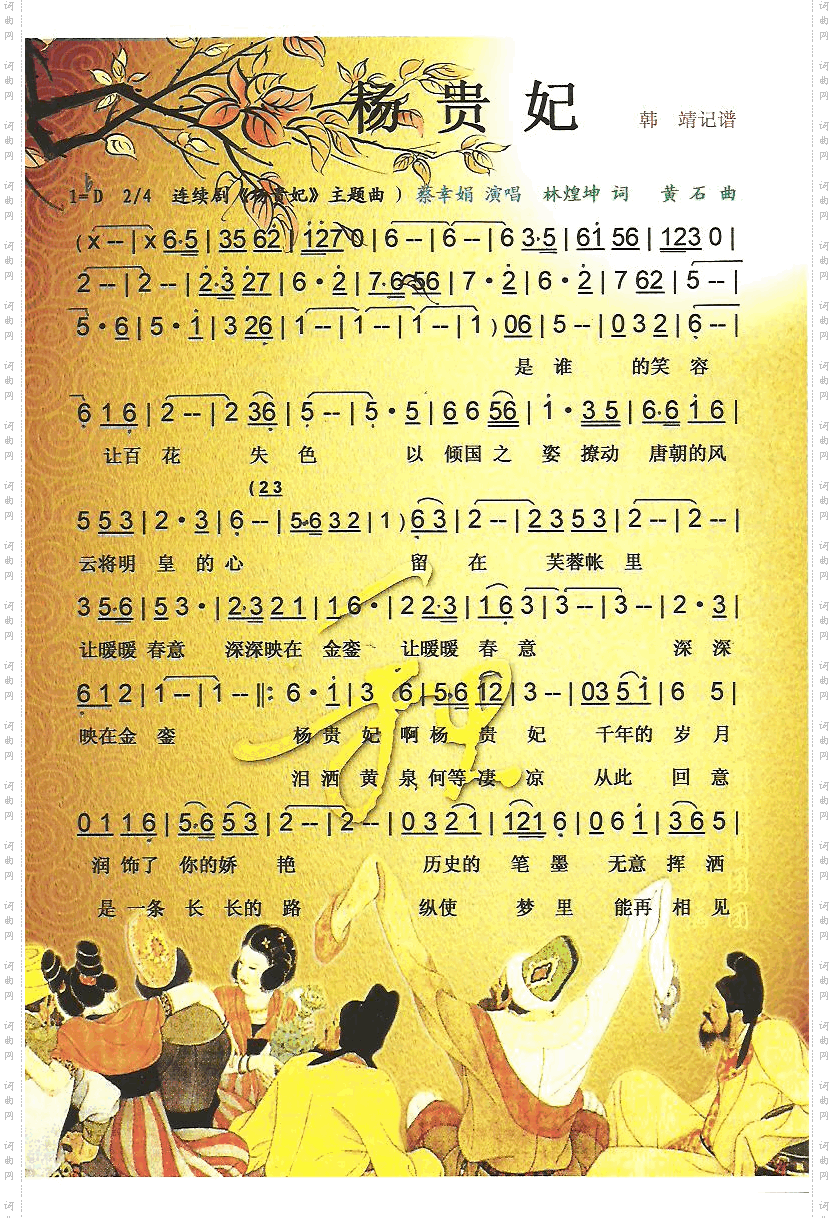 杨贵妃
韩 靖记谱
1=♭D 2/4 连续剧《杨贵妃》主题曲 ) 蔡幸娟 演唱 林煌坤 词 黄 石 曲
( x -- | x 6·5 | 35 62 | 127 0 | 6 -- | 6 -- | 6 3·5 | 61 56 | 123 0 |
2 -- | 2 -- | 2·3 27 | 6 · 2 | 7·6 56 | 7 · 2 | 6 · 2 | 7 62 | 5 -- |
5 · 6 | 5 · 1 | 3 26 | 1 -- | 1 -- | 1 -- | 1 ) 06 | 5 -- | 0 3 2 | 6 -- |
是 谁 的笑 容
6 1 6 | 2 -- | 2 36 | 5 -- | 5 · 5 | 6 6 56 | 1 · 3 5 | 6·6 1 6 |
让百 花 失 色 以 倾国 之 姿 撩动 唐朝的风
(2 3
5 5 3 | 2 · 3 | 6 -- | 5·6 3 2 | 1 ) 6 3 | 2 -- | 2 3 5 3 | 2 -- | 2 -- |
云将明 皇 的 心 留 在 芙蓉帐 里
3 5·6 | 5 3 · | 2·3 2 1 | 1 6 · | 2 2·3 | 1 6 3 | 3 -- | 3 -- | 2 · 3 |
让暖暖 春意 深深映在 金銮 让暖暖 春 意 深 深
6 1 2 | 1 -- | 1 -- | 1 -- ‖: 6 · 1 | 3 6 | 5·6 12 | 3 -- | 03 5 1 | 6 5 |
映在金 銮 杨 贵 妃 啊 杨 贵 妃 千年的 岁 月
泪 洒 黄 泉,何等 凄 凉 从此 回 意
0 1 1 6 | 5·6 5 3 | 2 -- | 2 -- | 0 3 2 1 | 121 6 | 0 6 1 | 3 6 5 |
润 饰了 你的娇 艳 历史的 笔 墨 无意 挥 洒
是 一条 长 长的 路 纵使 梦 里 能再 相 见
词曲网